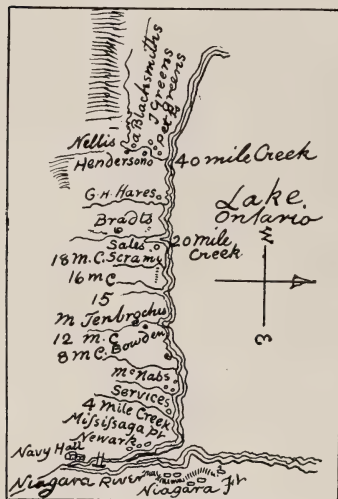 a Blacksmiths
J Greens
pet Greens
Nellis
Henderson
40 mile Creek
G. H. Hares
Lake
Ontario
Bradts
Sales
20 mile
Creek
18 M. C. Scram
16 m c
15
M Tenbrochus
12 M. C
8 m C. Bowden
McNabs
Services
4 Mile Creek
Missisaga pt
Newark
Navy Hall
Niagara River
Niagara Ft
W
E